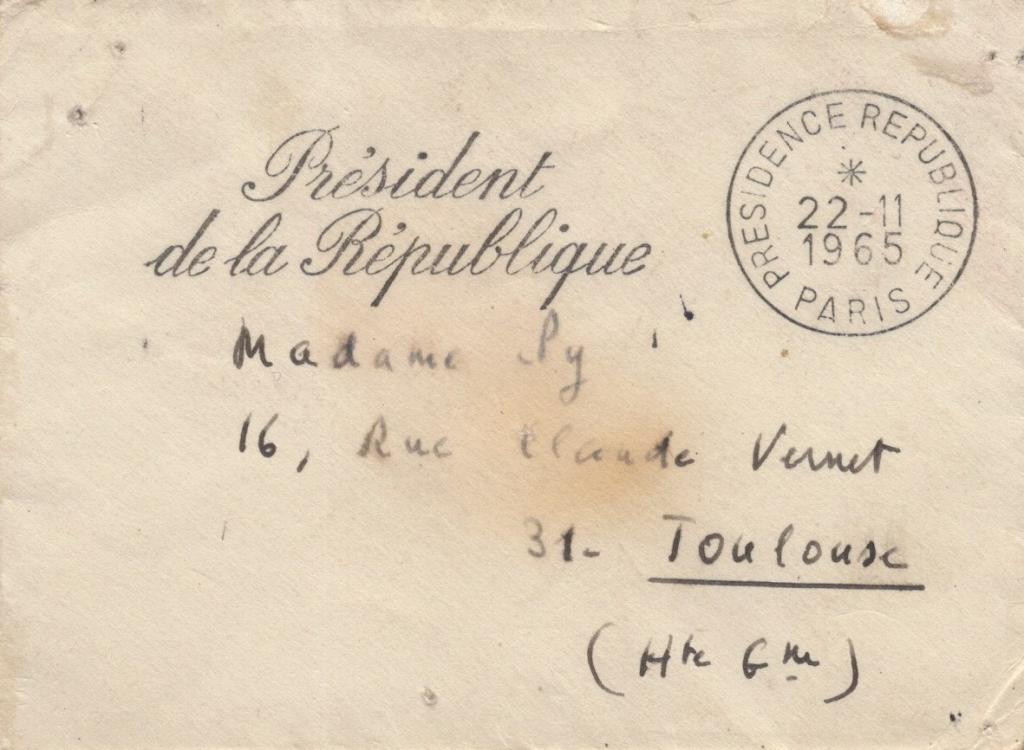 Président
de la République
PRESIDENCE REPUBLIQUE
22-11
1965
PARIS
Madame Py
16, Rue Claude Vernet
31- Toulouse
(Hte Gne)